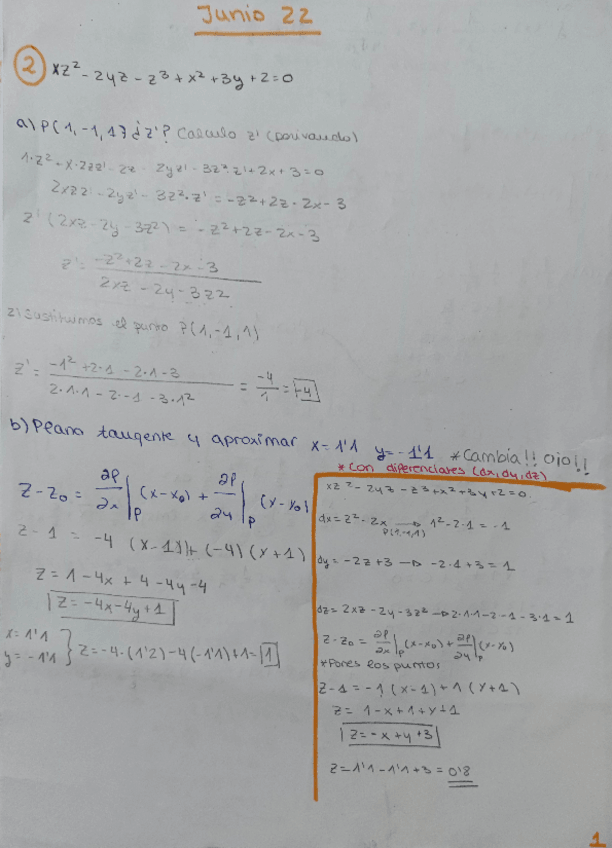 Junio 22
② xz² - 2yz - z³ + x² + 3y + 2 = 0
a) P(1, -1, 1) ¿z'? Calculo z' (derivando)
1·z² + x·2zz' - 2z - 2yz' - 3z²·z' + 2x + 3 = 0
2xzz' - 2yz' - 3z²·z' = -z² + 2z - 2x - 3
z' (2xz - 2y - 3z²) = -z² + 2z - 2x - 3
z' = -z² + 2z - 2x - 3 / 2xz - 2y - 3z2
2) Sustituimos el punto P(1, -1, 1)
z' = -1² + 2·1 - 2·1 - 3 / 2·1·1 - 2·-1 - 3·1² = -4/1 = -4
b) Plano tangente y aproximar x = 1'1 y = -1'1 *Cambia!! Ojo!!
z - z₀ = ∂P/∂x|p (x-x₀) + ∂P/∂y|p (y-y₀)
z - 1 = -4 (x-1) + (-4) (y+1)
z = 1 - 4x + 4 - 4y - 4
z = -4x - 4y + 1
x = 1'1
y = -1'1 } z = -4·(1'2) - 4(-1'1) + 1 = 1
* Con diferenciales (dx, dy, dz)
xz² - 2yz - z³ + x² + 3y + 2 = 0
dx = z² - 2x → P(1,-1,1) 1² - 2·1 = -1
dy = -2z + 3 → -2·1 + 3 = 1
dz = 2xz - 2y - 3z² → 2·1·1 - 2·-1 - 3·1 = 1
z - z₀ = ∂P/∂x|p (x-x₀) + ∂P/∂y|p (y-y₀)
*Pones los puntos
z - 1 = -1 (x-1) + 1 (y+1)
z = 1 - x + 1 + y + 1
z = -x + y + 3
z = 1'1 - 1'1 + 3 = 0'8
1